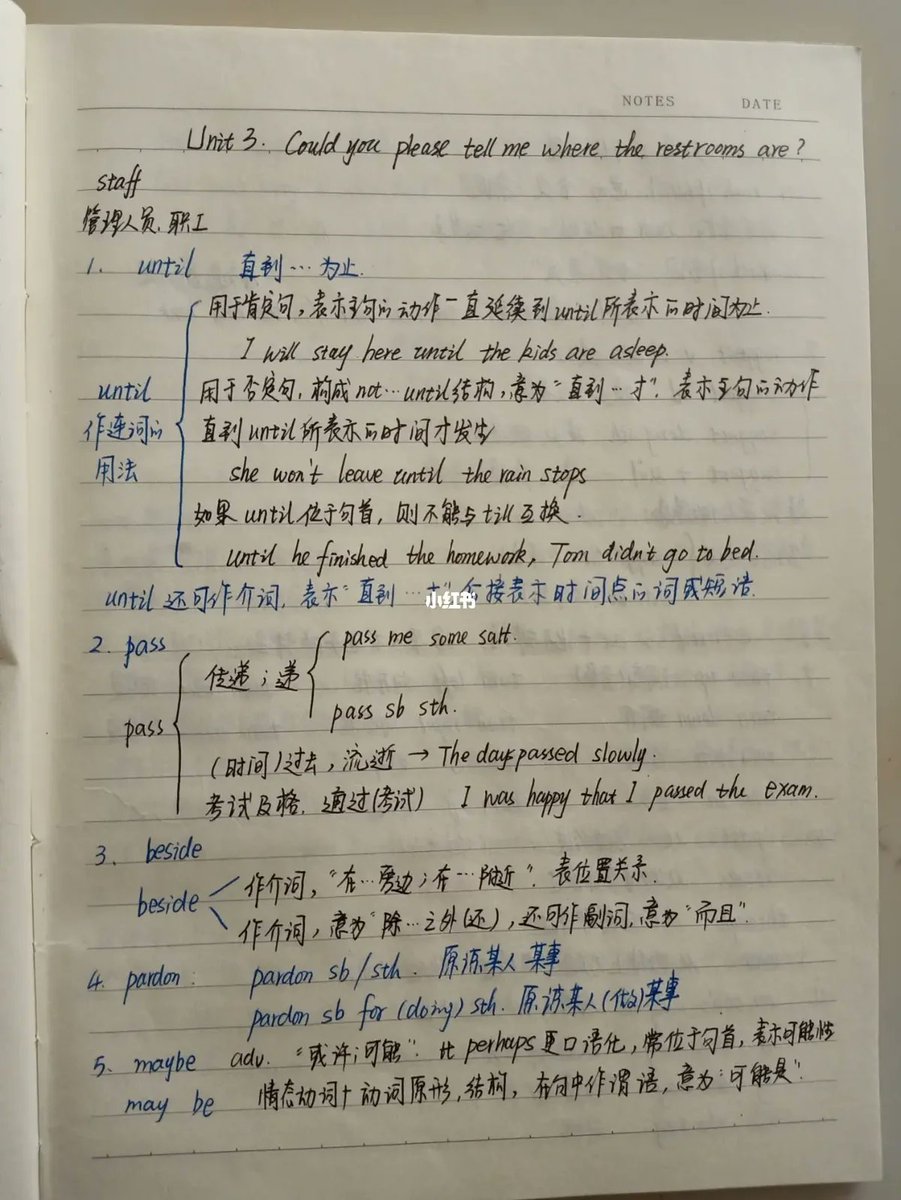 NOTES DATE
Unit 3. Could you please tell me where the restrooms are?
staff
管理人员、职工
1. until 直到…为止.
用于肯定句，表示主句的动作一直延续到until所表示的时间为止.
I will stay here until the kids are asleep.
until
作连词的
用法
用于否定句，构成not…until结构，意为“直到…才”. 表示主句的动作
直到until所表示的时间才发生
she won't leave until the rain stops
如果until位于句首，则不能与till互换.
until he finished the homework, Tom didn't go to bed.
until还可作介词，表示“直到…接表示时间点的词或短语.
小红书
2. pass
pass
传递；递
pass me some salt.
pass sb sth.
(时间)过去，流逝 → The days passed slowly.
考试及格. 通过(考试) I was happy that I passed the exam.
3. beside
beside
作介词，“在…旁边；在…附近”. 表位置关系.
作介词，意为“除…之外(还)，还可作副词，意为“而且”.
4. pardon: pardon sb/sth. 原谅某人 某事
pardon sb for (doing) sth. 原谅某人(做)某事
5. maybe adv. “或许；可能”. 比perhaps更口语化，常位于句首，表示可能性
may be 情态动词+动词原形,结构，在句中作谓语，意为“可能是”.